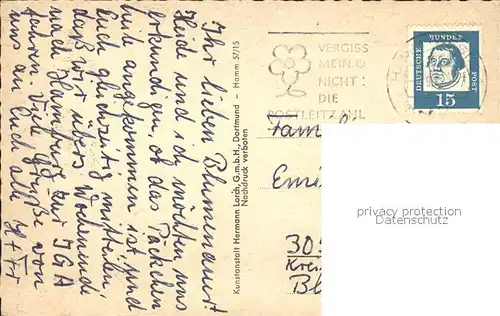 Ihr lieben Blumenauer!
Heidi und ich möchten uns
erkundigen, ob das Päckchen
gut angekommen ist und
Euch gleichzeitig mitteilen
daß wir übers Wochenende
nach Hamburg zur IGA
fahren. Viele Grüße von
uns an Euch all
Kunstanstalt Hermann Lorch, G.m.b.H., Dortmund - Hamm 57/15
Nachdruck verboten
VERGISS
MEIN
NICHT:
DIE
POSTLEITZAHL
DEUTSCHE BUNDES POST
15
Fam
Emi
30
Krei
Bl
privacy protection
Datenschutz